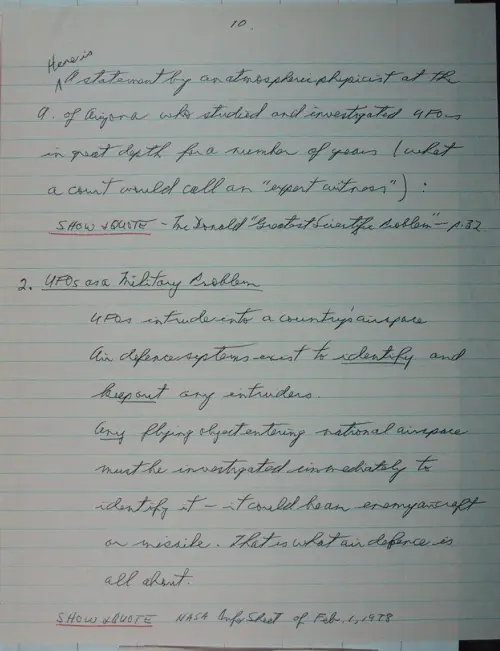 10.
Here is
A statement by an atmospheric physicist at the
U. of Arizona who studied and investigated UFOs
in great depth for a number of years (what
a court would call an "expert witness") :
SHOW & QUOTE - McDonald "Greatest Scientific Problem" - p. 32
2. UFOs as a Military Problem
UFOs intrude into a country's airspace
Air defence systems exist to identify and
keep out any intruders.
Any flying object entering national airspace
must be investigated immediately to
identify it - it could be an enemy aircraft
or missile. That is what air defence is
all about.
SHOW & QUOTE NASA Info Sheet of Feb. 1, 1978